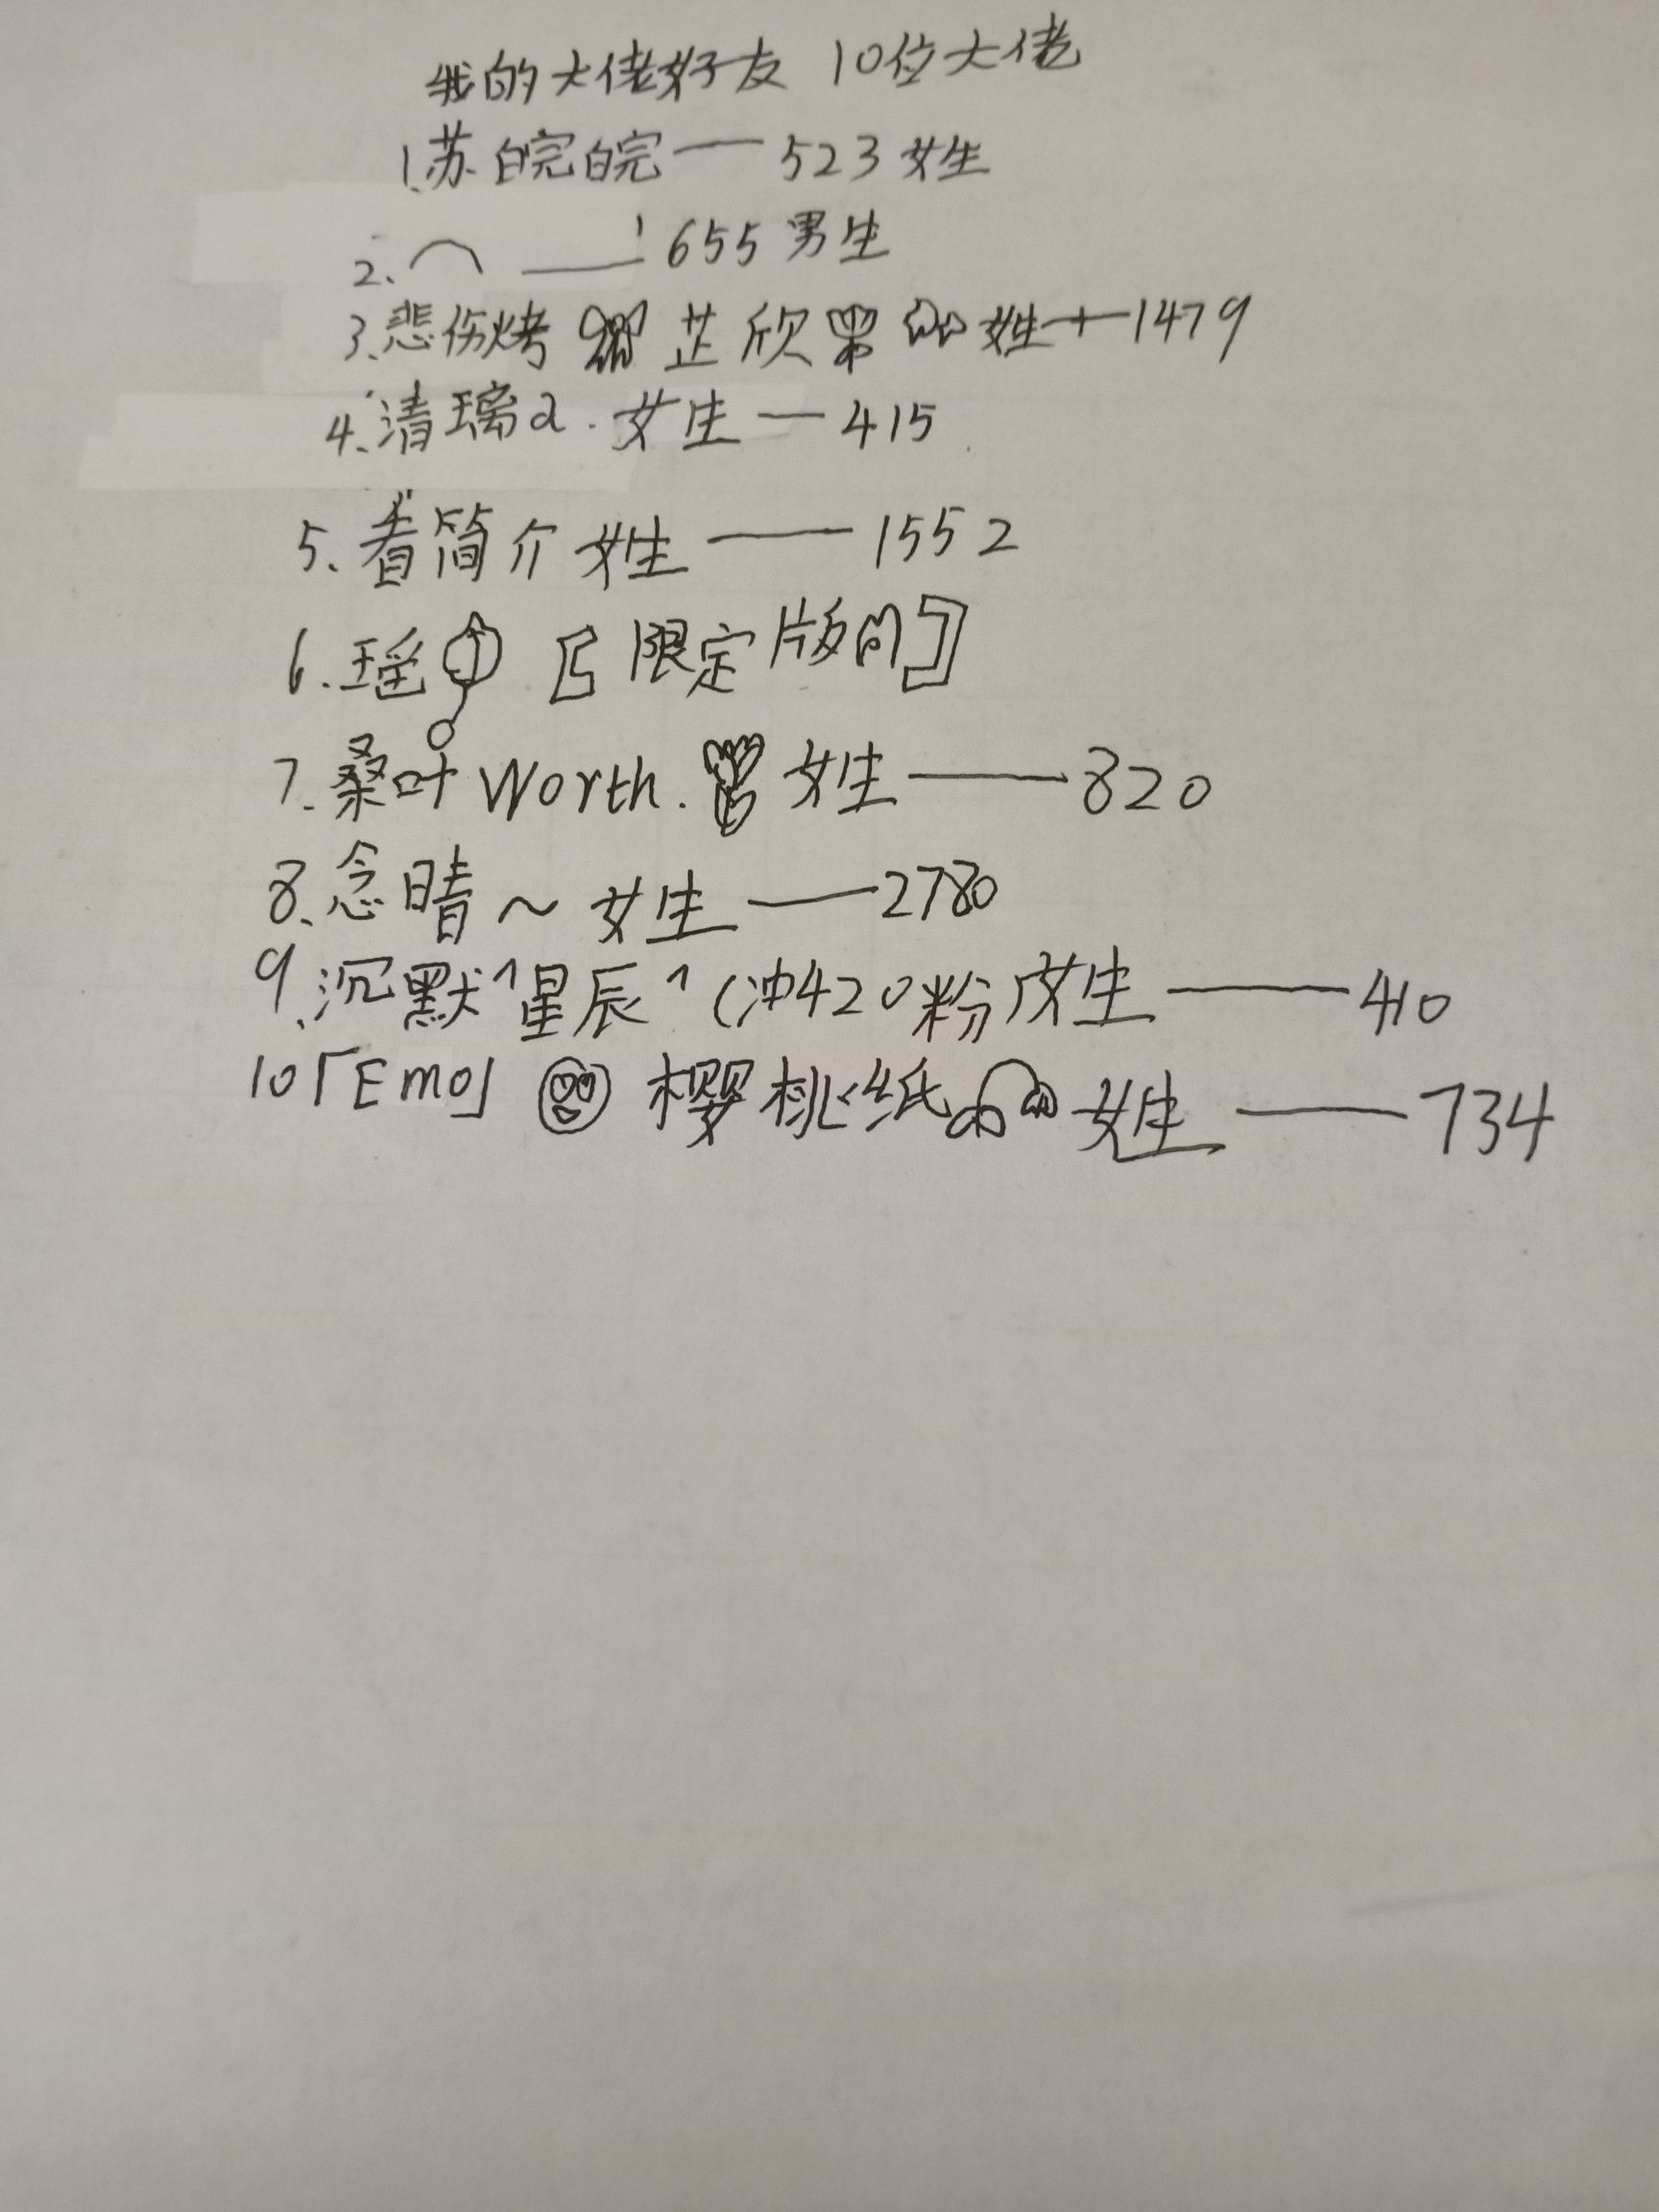 我的大佬好友 10位大佬
1.苏皖皖——523女生
2.⌒ ——! 655男生
3.悲伤烤 芷欣 女生——1479
4.清璃a.女生——415
5.看简介 女生——1552
6.瑶 [限定版的]
7.桑叶Worth. 女生——820
8.念晴~女生——2780
9.沉默^星辰^(冲420粉)女生——410
10「Emo」 樱桃纸 女生——734